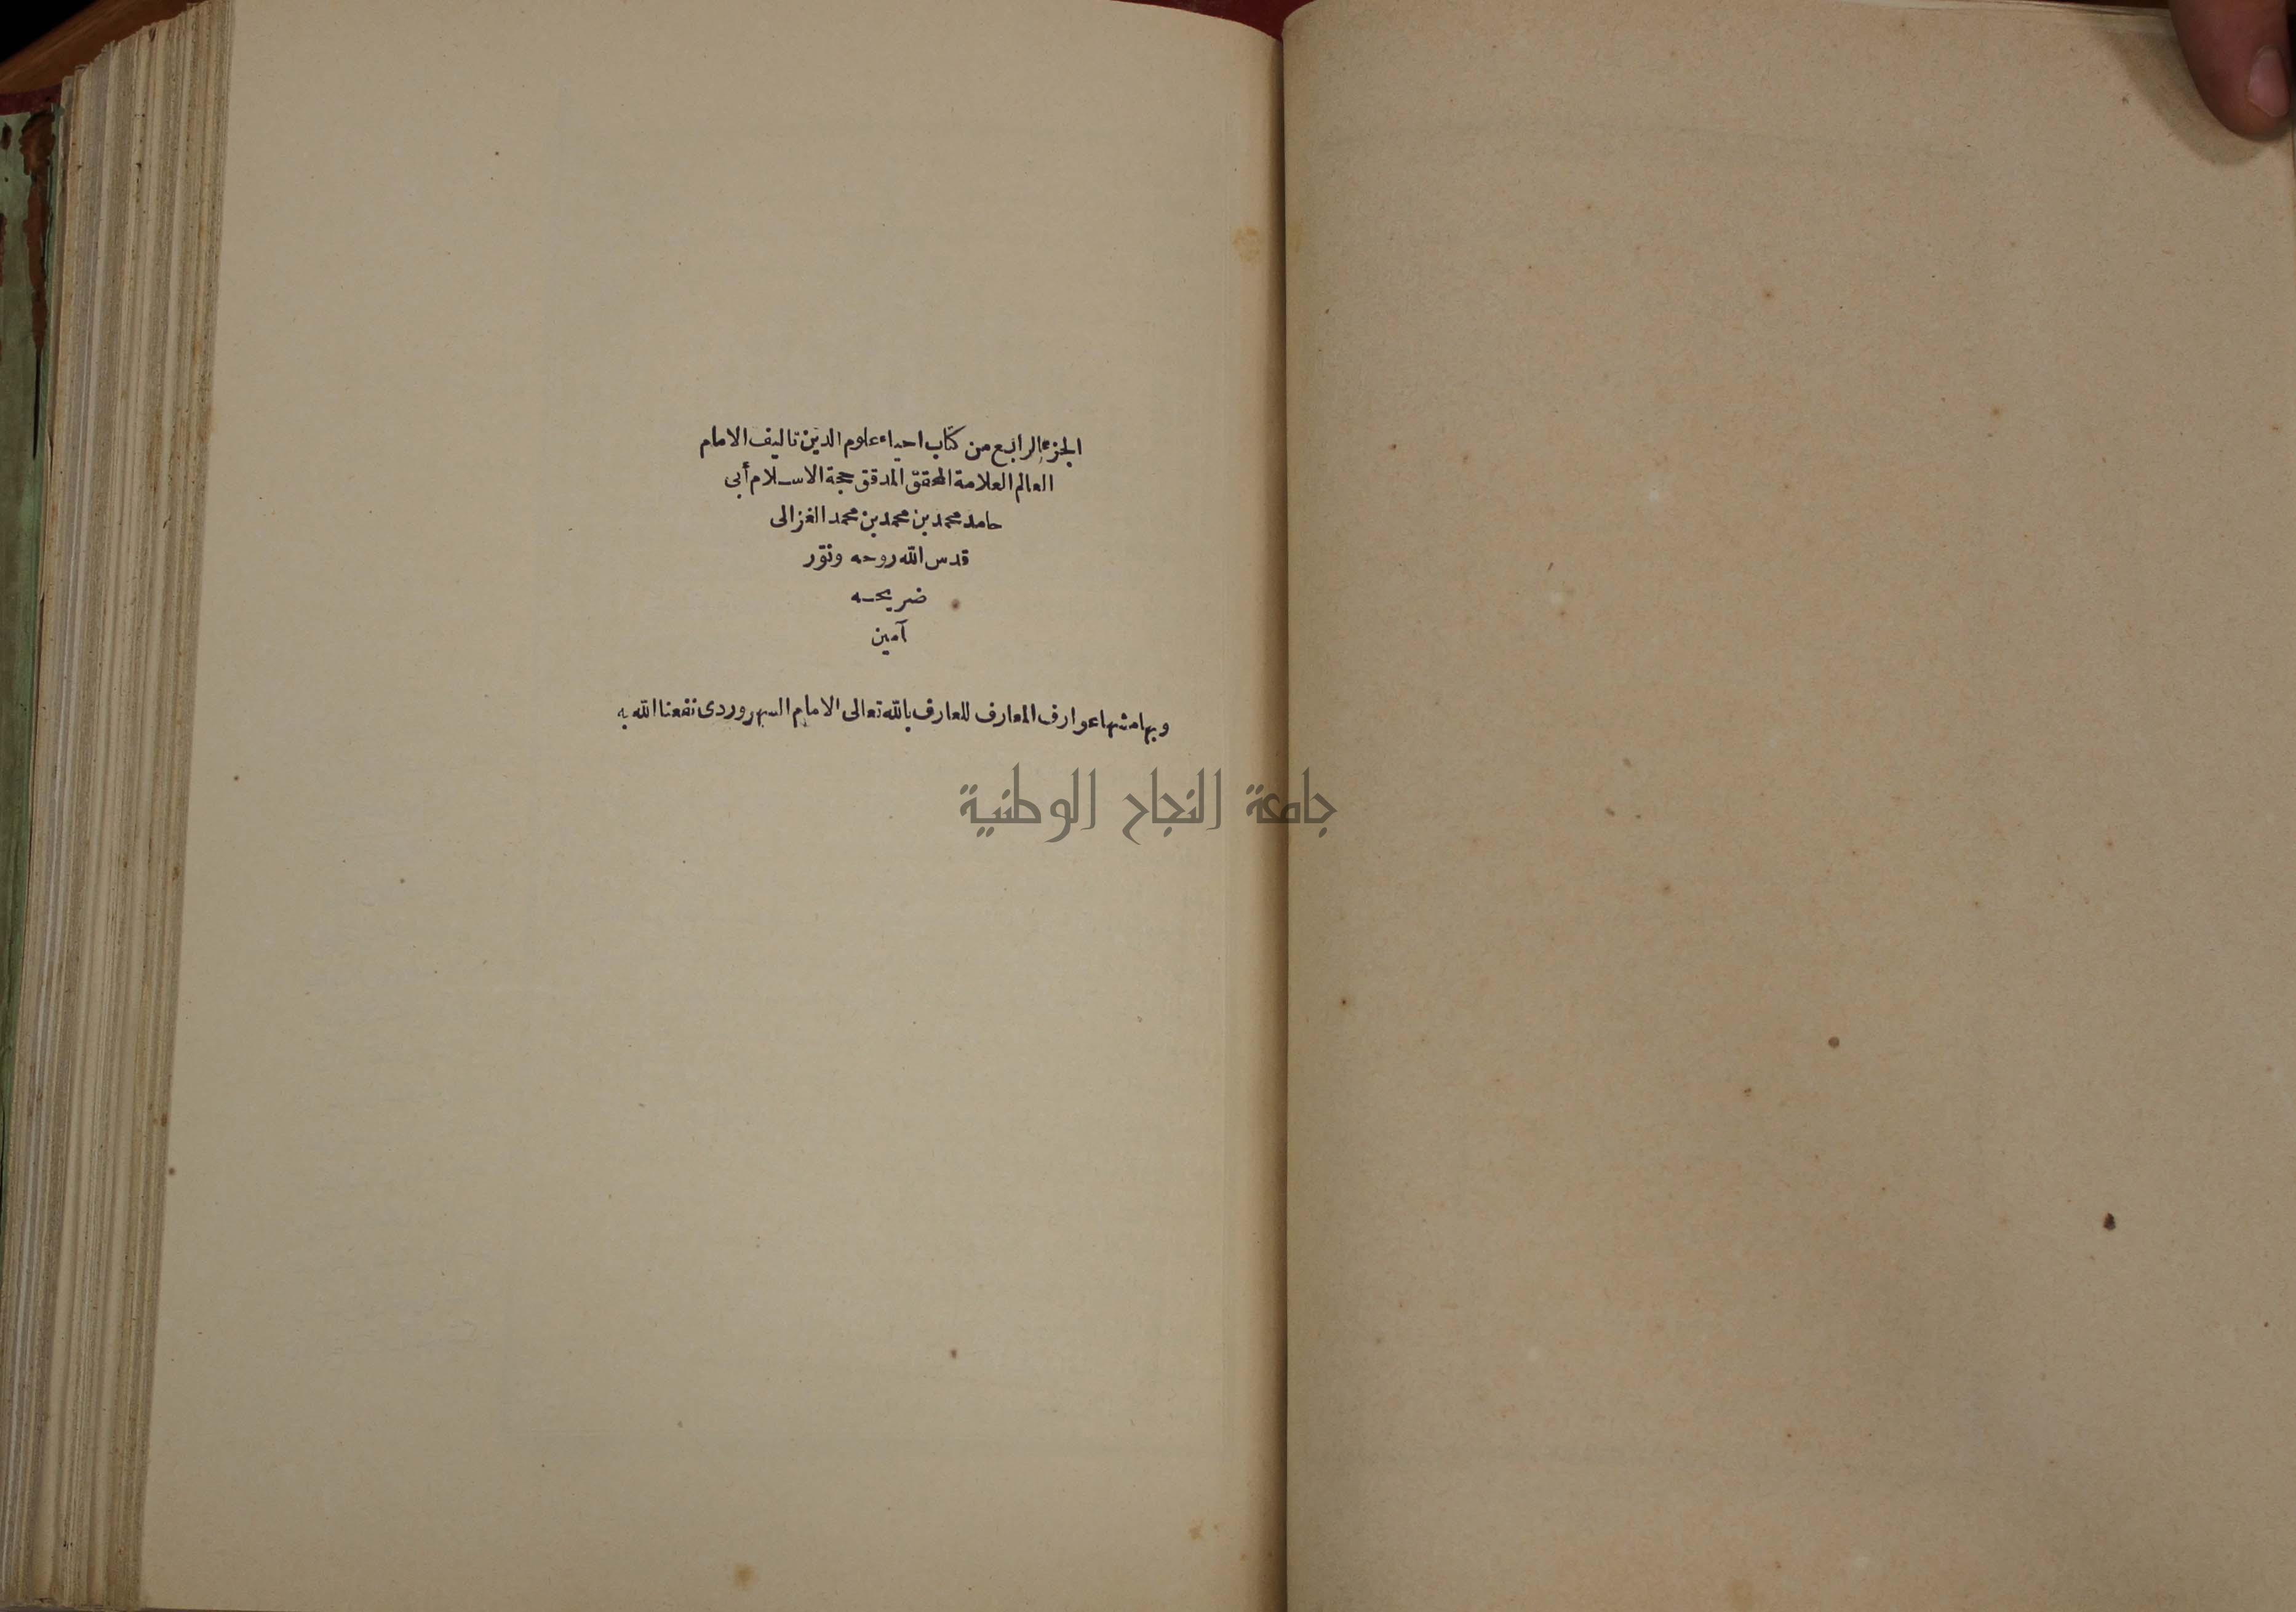 الجزء الرابع من كتاب احياء علوم الدين تاليف الامام
العالم العلامة المحقق المدقق حجة الاسلام أبى
حامد محمد بن محمد بن محمد الغزالى
قدس الله روحه ونوّر
ضريحه
آمين
وبهامشها عوارف المعارف للعارف بالله تعالى الامام السهروردى نفعنا الله به
جامعة النجاح الوطنية